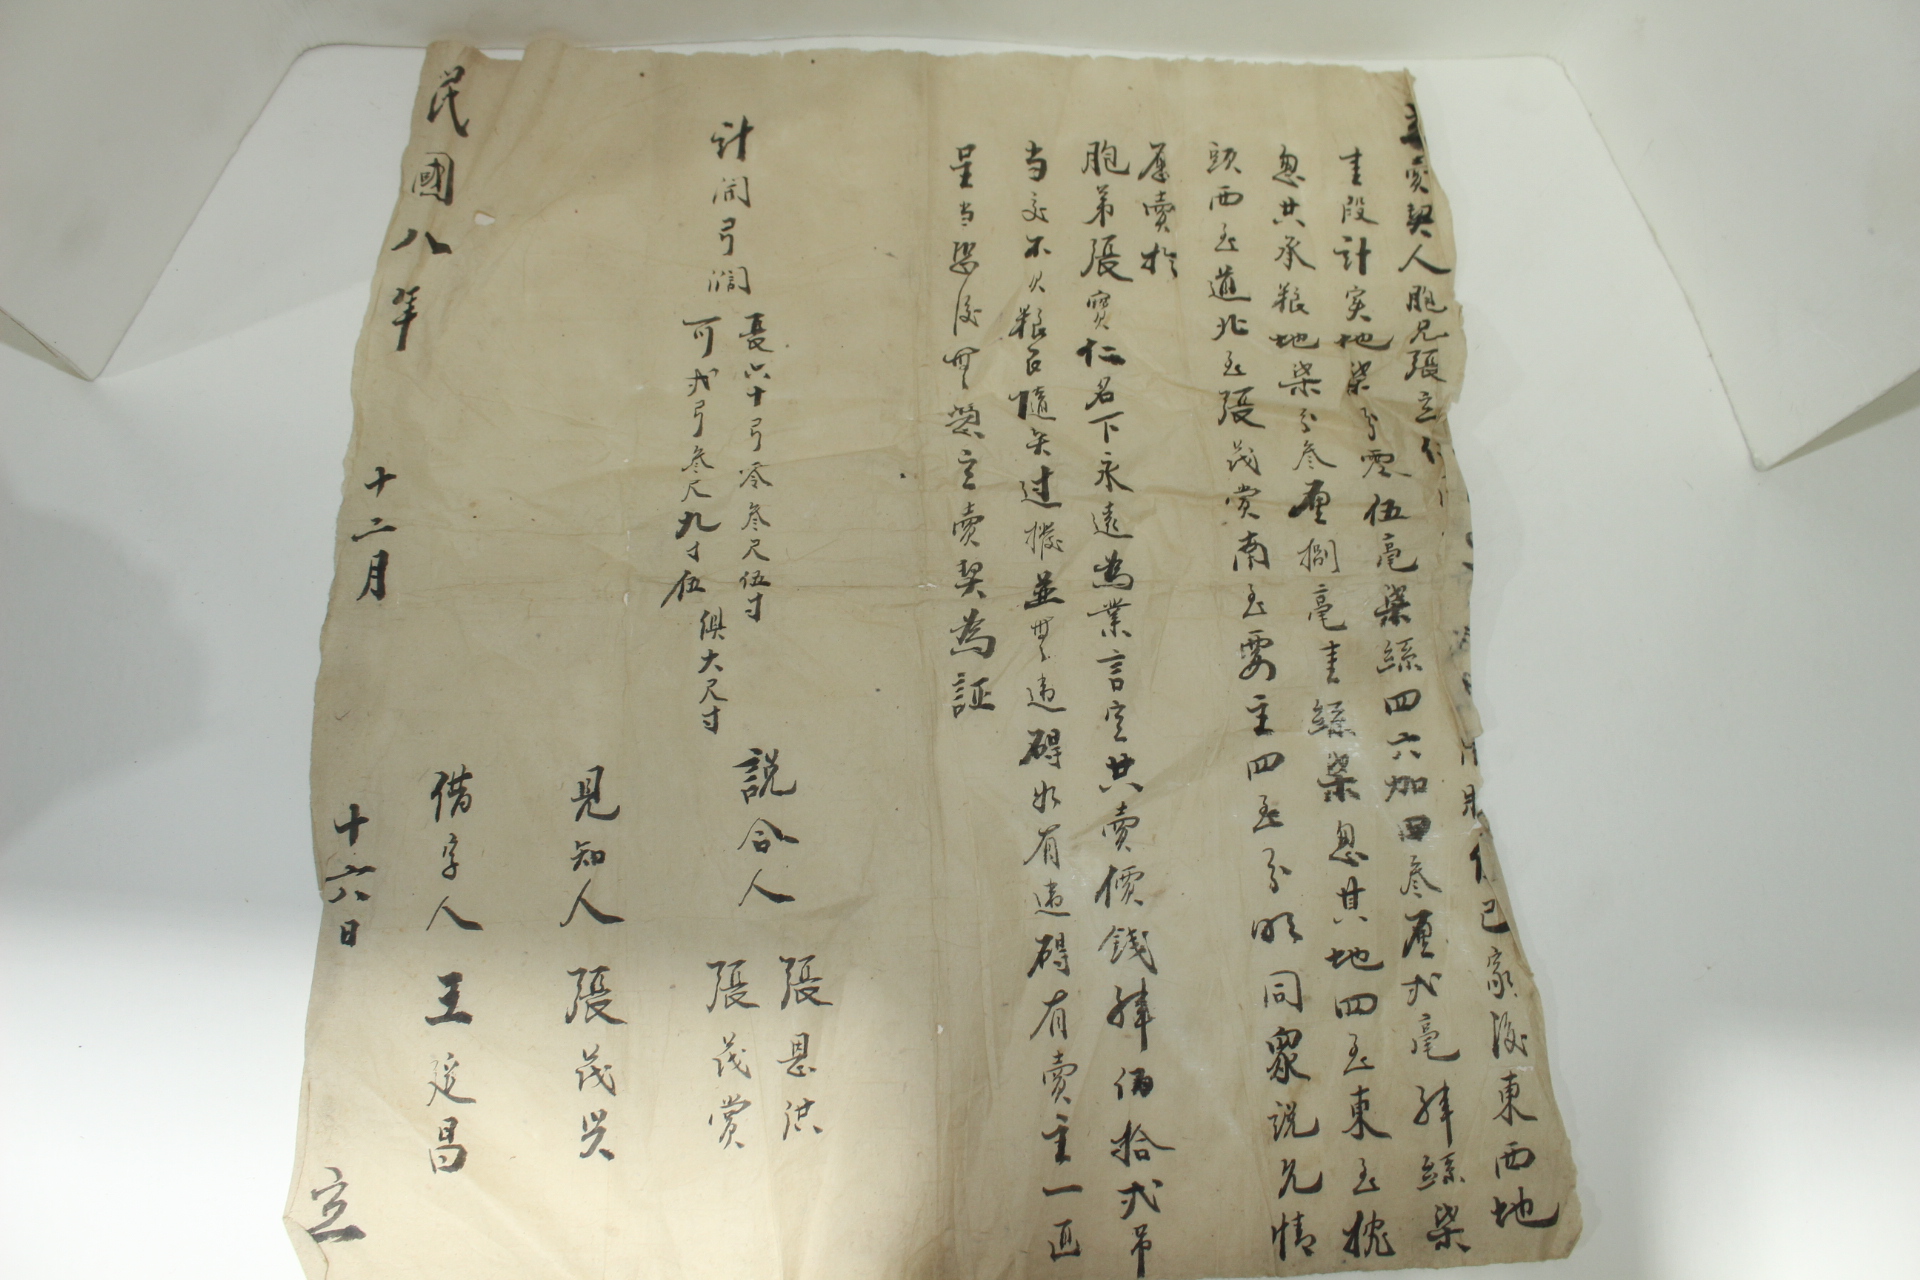 立賣契人胞兄張立仁 己家後東西地
壹段計实地柒分零伍毫柒絲四六加四叁厘弍毫肆絲柒
忽共承粮地柒分叁厘捌毫壹絲柒忽其地四至東至
頭西至道北至張茂賞南至要主四至分明同眾説允情
愿賣於
胞弟張寶仁名下永遠為業言定共賣價錢肆佰拾弍吊
当交不欠粮名隨矢过撥並無违碍如有违碍有賣主一面
呈当恐後無憑立賣契為証
計闹弓濶
長六十弓零叁尺伍寸
可弍弓叁尺九寸伍
俱大尺寸
説合人 張恩洪
張茂賞
見知人 張茂興
借字人 王廷昌
民國八年 十二月 十六日 立